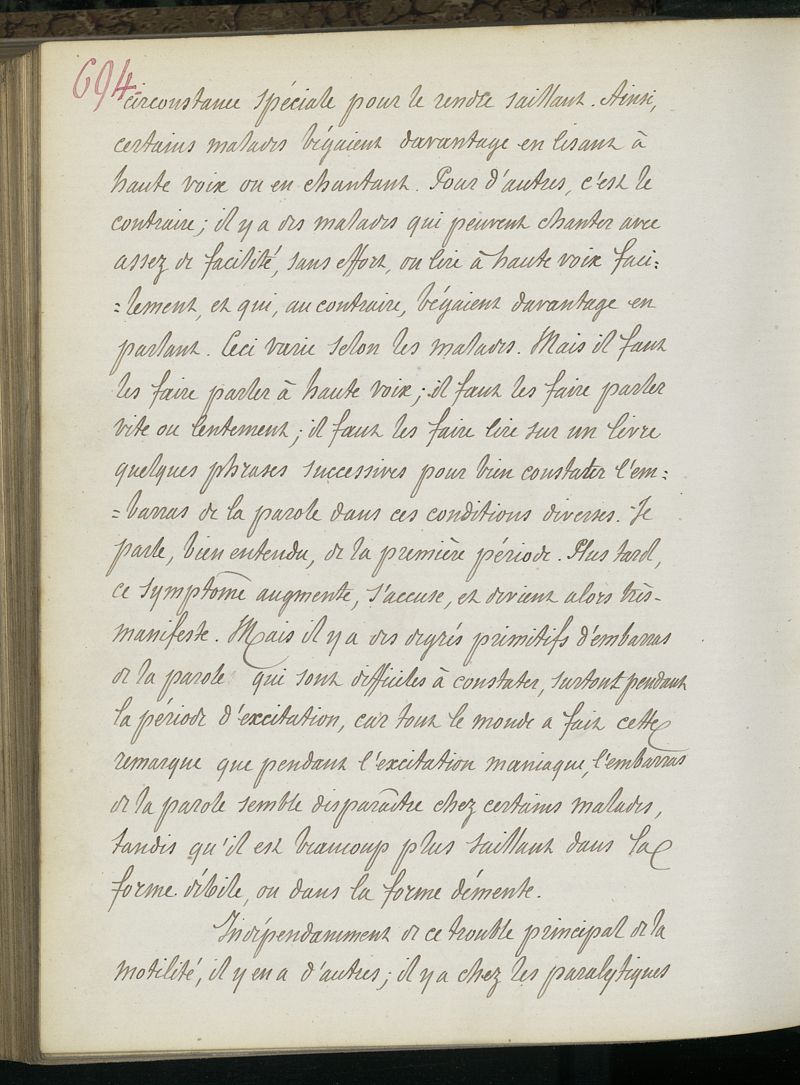 694
circonstance spéciale pour le rendre saillant. Ainsi,
certains malades bégaient davantage en lisant à
haute voix ou en chantant. Pour d'autres, c'est le
contraire; il y a des malades qui peuvent chanter avec
assez de facilité, sans effort, ou lire à haute voix faci=
=lement, et qui, au contraire, bégaient davantage en
parlant. Ceci varie selon les malades. Mais il faut
les faire parler à haute voix; il faut les faire parler
vite ou lentement; il faut les faire lire sur un livre
quelques phrases successives pour bien constater l'em=
=barras de la parole dans ces conditions diverses. Je
parle, bien entendu, de la première période. Plus tard,
ce symptôme augmente, s'accuse, et devient alors très-
manifeste. Mais il y a des degrés primitifs d'embarras
de la parole qui sont difficiles à constater, surtout pendant
la période d'excitation, car tout le monde a fait cette
remarque que pendant l'excitation maniaque, l'embarras
de la parole semble disparaître chez certains malades,
tandis qu'il est beaucoup plus saillant dans la
forme débile, ou dans la forme démente.
Indépendamment de ce trouble principal de la
motilité, il y en a d'autres; il y a chez les paralytiques